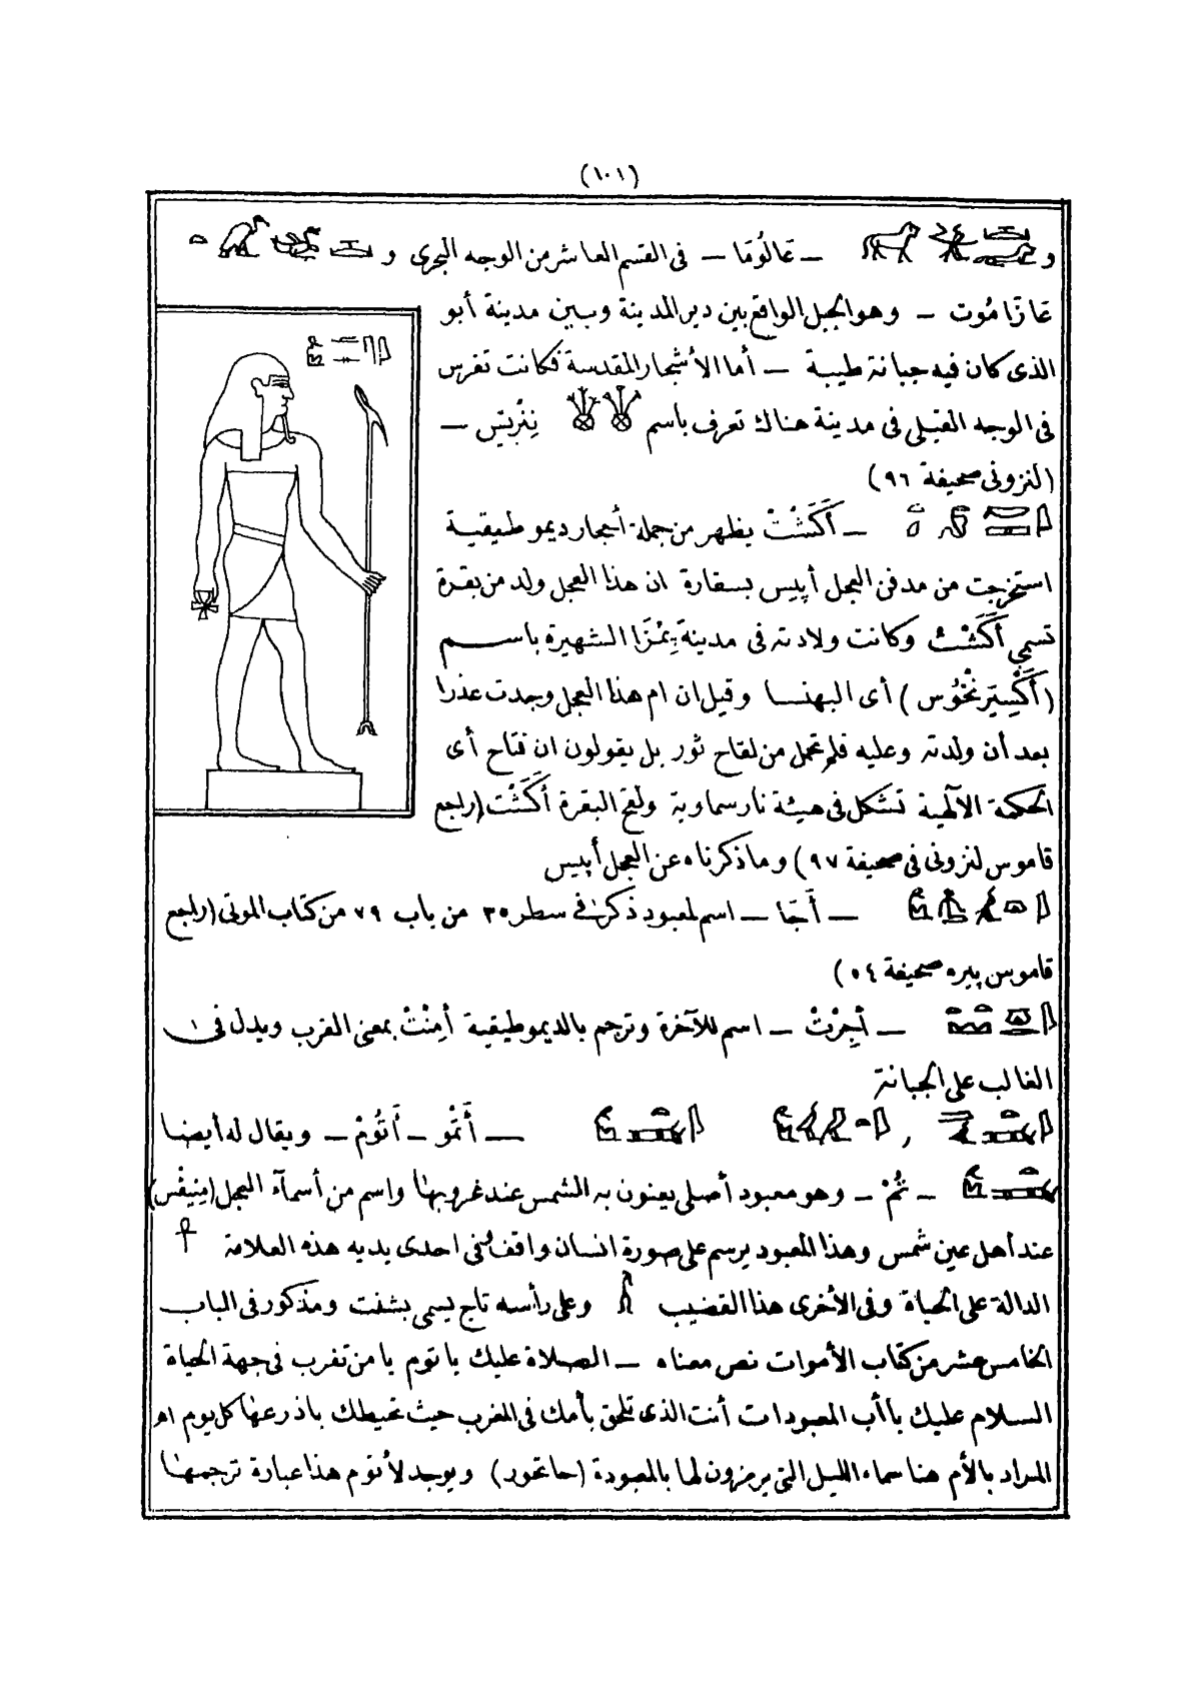 (١٠١)
و — عَالُوُمَا — فى القسم العاشر من الوجه البحرى و
عَازَامُوت — وهو الجبل الواقع بين دير المدينة وبين مدينة أبو
الذى كان فيه جبانة طيبة — أما الأشجار المقدسة فكانت تغرس
فى الوجه القبلى فى مدينة هناك تعرف باسم —
(لنزونى صحيفة ٩٦)
— أَكَشْتْ يظهر من جملة أحجار ديموطيقية
استخرجت من مدفن العجل أپيس بسقارة ان هذا العجل ولد من بقرة
تسمى أَكَشْتْ وكانت ولادته فى مدينة الشهيرة باسم
( ) أى البهنسا وقيل ان ام هذا العجل وجدت عذرا
بعد أن ولدته وعليه فلم تحمل من لقاح ثور بل يقولون ان فتاح أى
الحكمة الآلهية تشكل فى هيئة نار سماوية ولقح البقرة أَكَشْت (راجع
قاموس لنزونى فى صحيفة ٩٧) وما ذكرناه عن العجل أپيس
— أَجَا — اسم لمعبود ذكر فى سطر ٣٥ من باب ٧٩ من كتاب الموتى (راجع
قاموس پيره صحيفة ٥٤)
— أَجِرْتْ — اسم للآخرة وترجم بالديموطيقية أمِنْتْ بمعنى الغرب ويدل فى
الغالب على الجبانة
, — أَتْمُو — أَتُومْ — ويقال له أيضا
— تُمْ — وهو معبود أصلى يعنون به الشمس عند غروبها واسم من أسمآء العجل (مِنِيفْس)
عند أهل عين شمس وهذا المعبود يرسم على صورة انسان واقف فى احدى يديه هذه العلامة
الدالة على الحياة وفى الأخرى هذا القضيب وعلى رأسه تاج يسمى بشنت ومذكور فى الباب
الخامس عشر من كتاب الأموات نص معناه — الصلاة عليك يا توم يا من تغرب فى جهة الحياة
السلام عليك يا أب المعبودات أنت الذى تلحق بأمك فى المغرب حيث تحيطك باذرعها كل يوم اه
المراد بالأم هنا سماء الليل التى يرمزون لها بالمعبودة (حاتحور) ويوجد لأتوم هذا عبارة ترجمتها